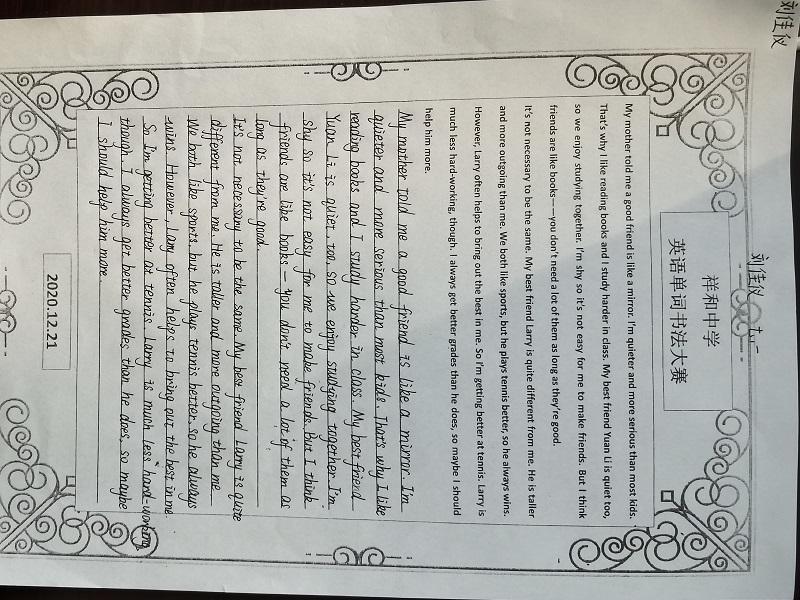 刘佳仪
刘佳仪
祥和中学
英语单词书法大赛
My mother told me a good friend is like a mirror. I'm quieter and more serious than most kids.
That's why I like reading books and I study harder in class. My best friend Yuan Li is quiet too,
so we enjoy studying together. I'm shy so it's not easy for me to make friends. But I think
friends are like books——you don't need a lot of them as long as they're good.
It's not necessary to be the same. My best friend Larry is quite different from me. He is taller
and more outgoing than me. We both like sports, but he plays tennis better, so he always wins.
However, Larry often helps to bring out the best in me. So I'm getting better at tennis. Larry is
much less hard-working, though. I always get better grades than he does, so maybe I should
help him more.
My mother told me a good friend is like a mirror. I'm
quieter and more serious than most kids. That's why I like
reading books and I study harder in class. My best friend
Yuan Li is quiet, too so we enjoy studying together. I'm
shy so it's not easy for me to make friends. But I think
friends are like books — you don't need a lot of them as
long as they're good.
It's not necessary to be the same. My best friend Larry is quite
different from me. He is taller and more outgoing than me
We both like sports, but he plays tennis better, so he always
wins. However, Larry often helps to bring out the best in me.
So I'm getting better at tennis. Larry is much less hard-working
though. I always get better grades than he does, so maybe
I should help him more.
2020.12.21